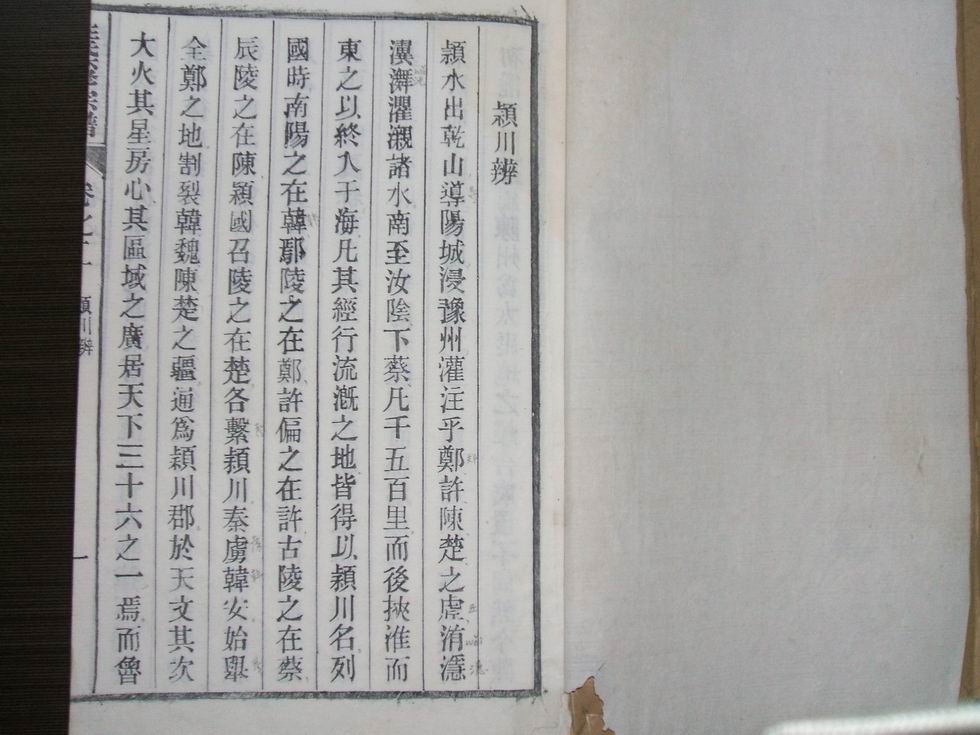 潁川辨
潁水出乾山導陽城浸豫州灌注乎鄭許陳楚之虛洧濦
瀷潩灈瀙諸水南至汝陰下蔡凡千五百里而後挾淮而
東之以終入于海凡其經行流漑之地皆得以潁川名列
國時南陽之在韓鄢陵之在鄭許偏之在許古陵之在蔡
辰陵之在陳潁國召陵之在楚各繫潁川秦虜韓安始舉
全鄭之地割裂韓魏陳楚之疆通爲潁川郡於天文其次
大火其星房心其區域之廣居天下三十六之一焉而魯
宗譜
卷之
潁川辨
一